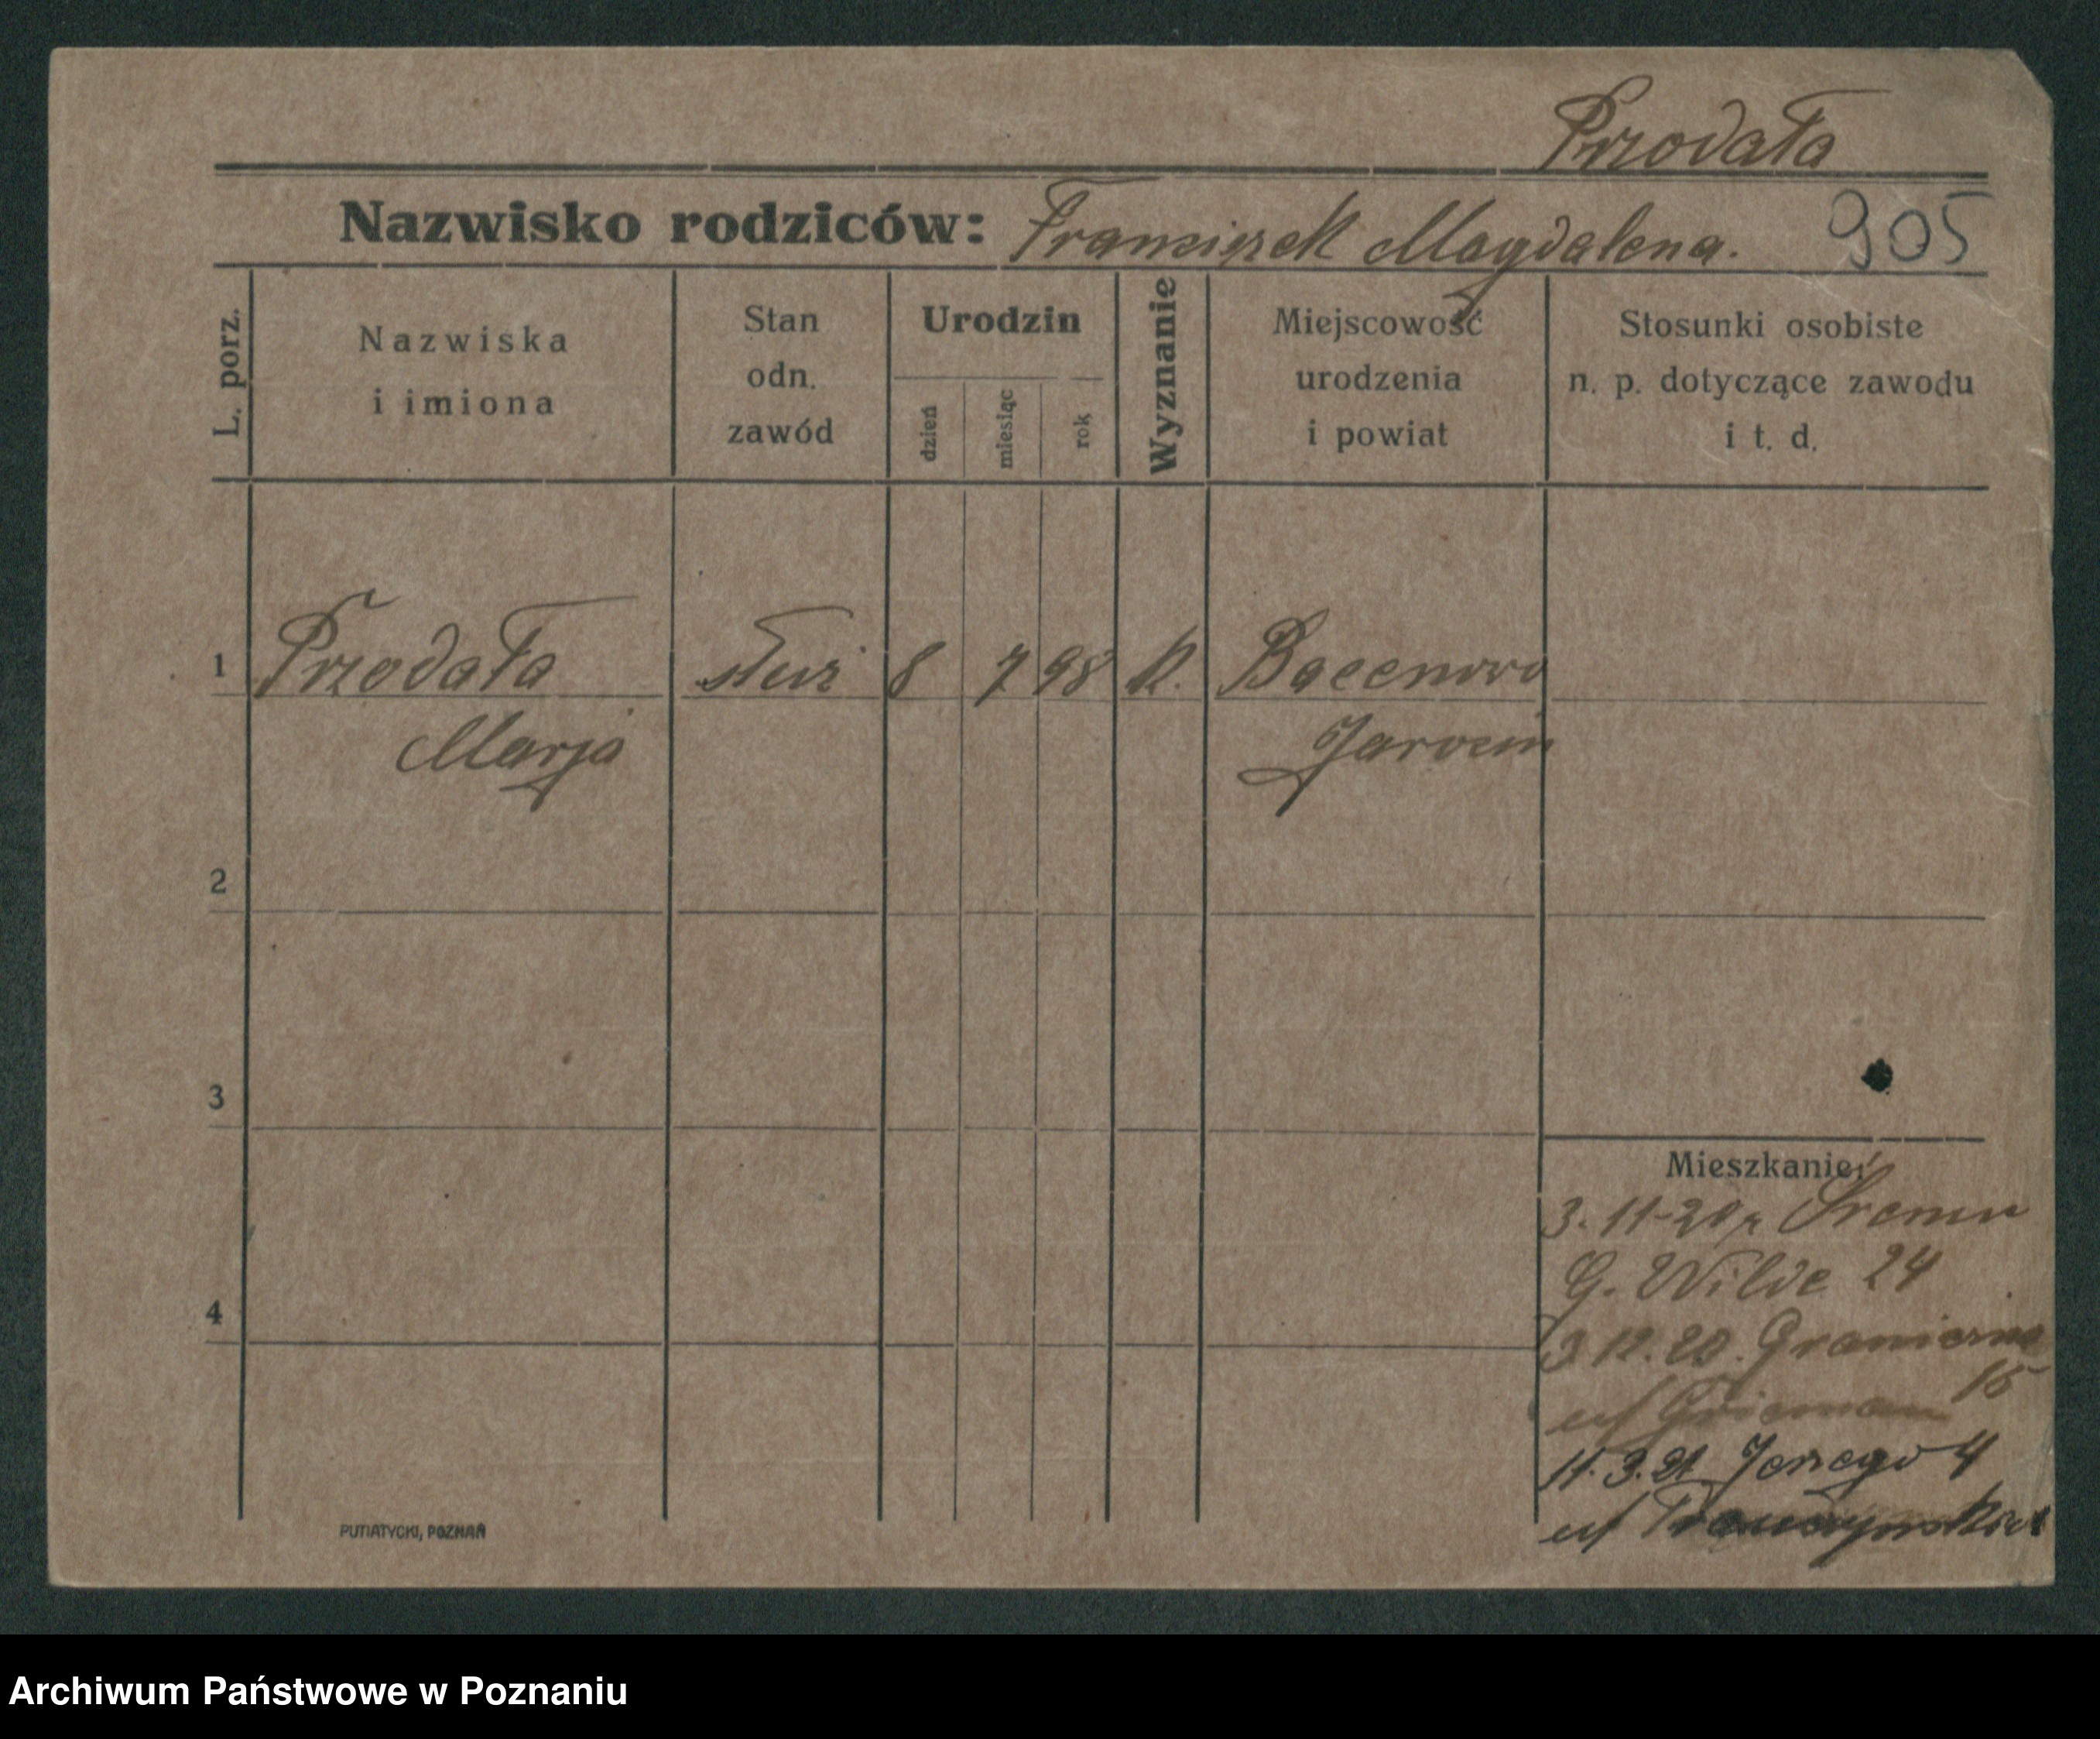 Przodała
Nazwisko rodziców: Franciszek Magdalena. 905
L. porz.
Nazwiska
i imiona
Stan
odn.
zawód
Urodzin
dzień
miesiąc
rok
Wyznanie
Miejscowość
urodzenia
i powiat
Stosunki osobiste
n. p. dotyczące zawodu
i t. d.
1 Przodała służ 8 7 98 K.
Marja Jarocin
2
3
4
Mieszkanie:
3. 11-20 z Śremu
G. Wilde 24
3.12.20. Graniczna
15
11.3.21 Jerzego 4
PUTIATYCKI, POZNAŃ
Archiwum Państwowe w Poznaniu